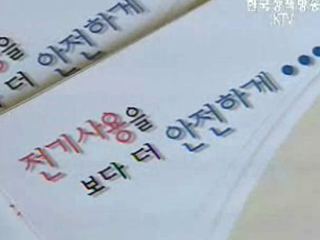 한국정책방송
KTV
을
더 안전하게
전기사용을
보다 더 안전하게 •••